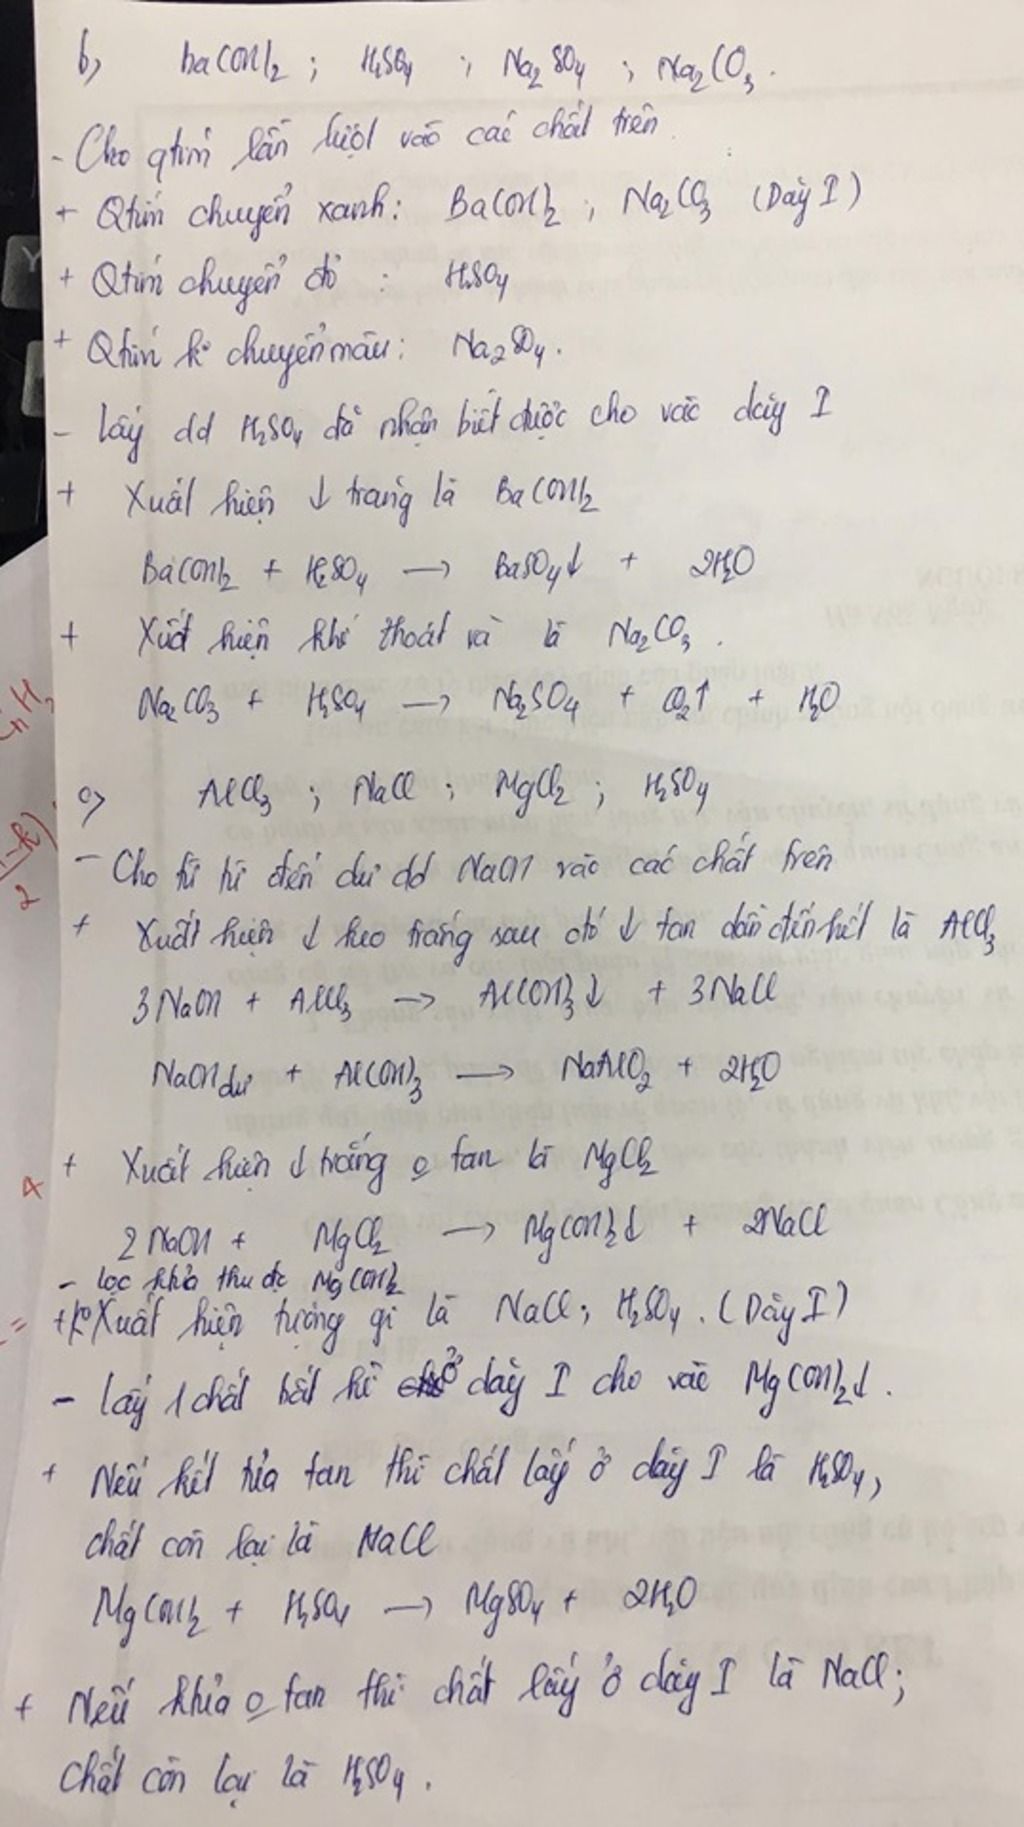 b, ba(OH)2 ; H2SO4 ; Na2SO4 ; Na2CO3.
- Cho qtím lần lượt vào các chất trên.
+ Qtím chuyển xanh: Ba(OH)2 ; Na2CO3 (Dãy I)
+ Qtím chuyển đỏ : H2SO4
+ Qtím k° chuyển màu: Na2SO4.
- lấy dd H2SO4 đã nhận biết được cho vào dãy I
+ Xuất hiện ↓ trắng là Ba(OH)2
Ba(OH)2 + H2SO4 → BaSO4↓ + 2H2O
+ Xuất hiện khí thoát và là Na2CO3.
Na2CO3 + H2SO4 → Na2SO4 + CO2↑ + H2O
c, AlCl3 ; NaCl ; MgCl2 ; H2SO4
- Cho từ từ đến dư dd NaOH vào các chất trên
+ Xuất hiện ↓ keo trắng sau đó ↓ tan dần đến hết là AlCl3
3NaOH + AlCl3 → Al(OH)3↓ + 3NaCl
NaOH dư + Al(OH)3 → NaAlO2 + 2H2O
+ Xuất hiện ↓ trắng o tan là MgCl2
4
2NaOH + MgCl2 → Mg(OH)2↓ + 2NaCl
- lọc ktủa thu đc Mg(OH)2
+ k° Xuất hiện tượng gì là NaCl; H2SO4. (Dãy I)
- lấy 1 chất bất kì ở dãy I cho vào Mg(OH)2↓.
+ Nếu kết tủa tan thì chất lấy ở dãy I là H2SO4,
chất còn lại là NaCl
Mg(OH)2 + H2SO4 → MgSO4 + 2H2O
+ Nếu ktủa o tan thì chất lấy ở dãy I là NaCl;
chất còn lại là H2SO4.